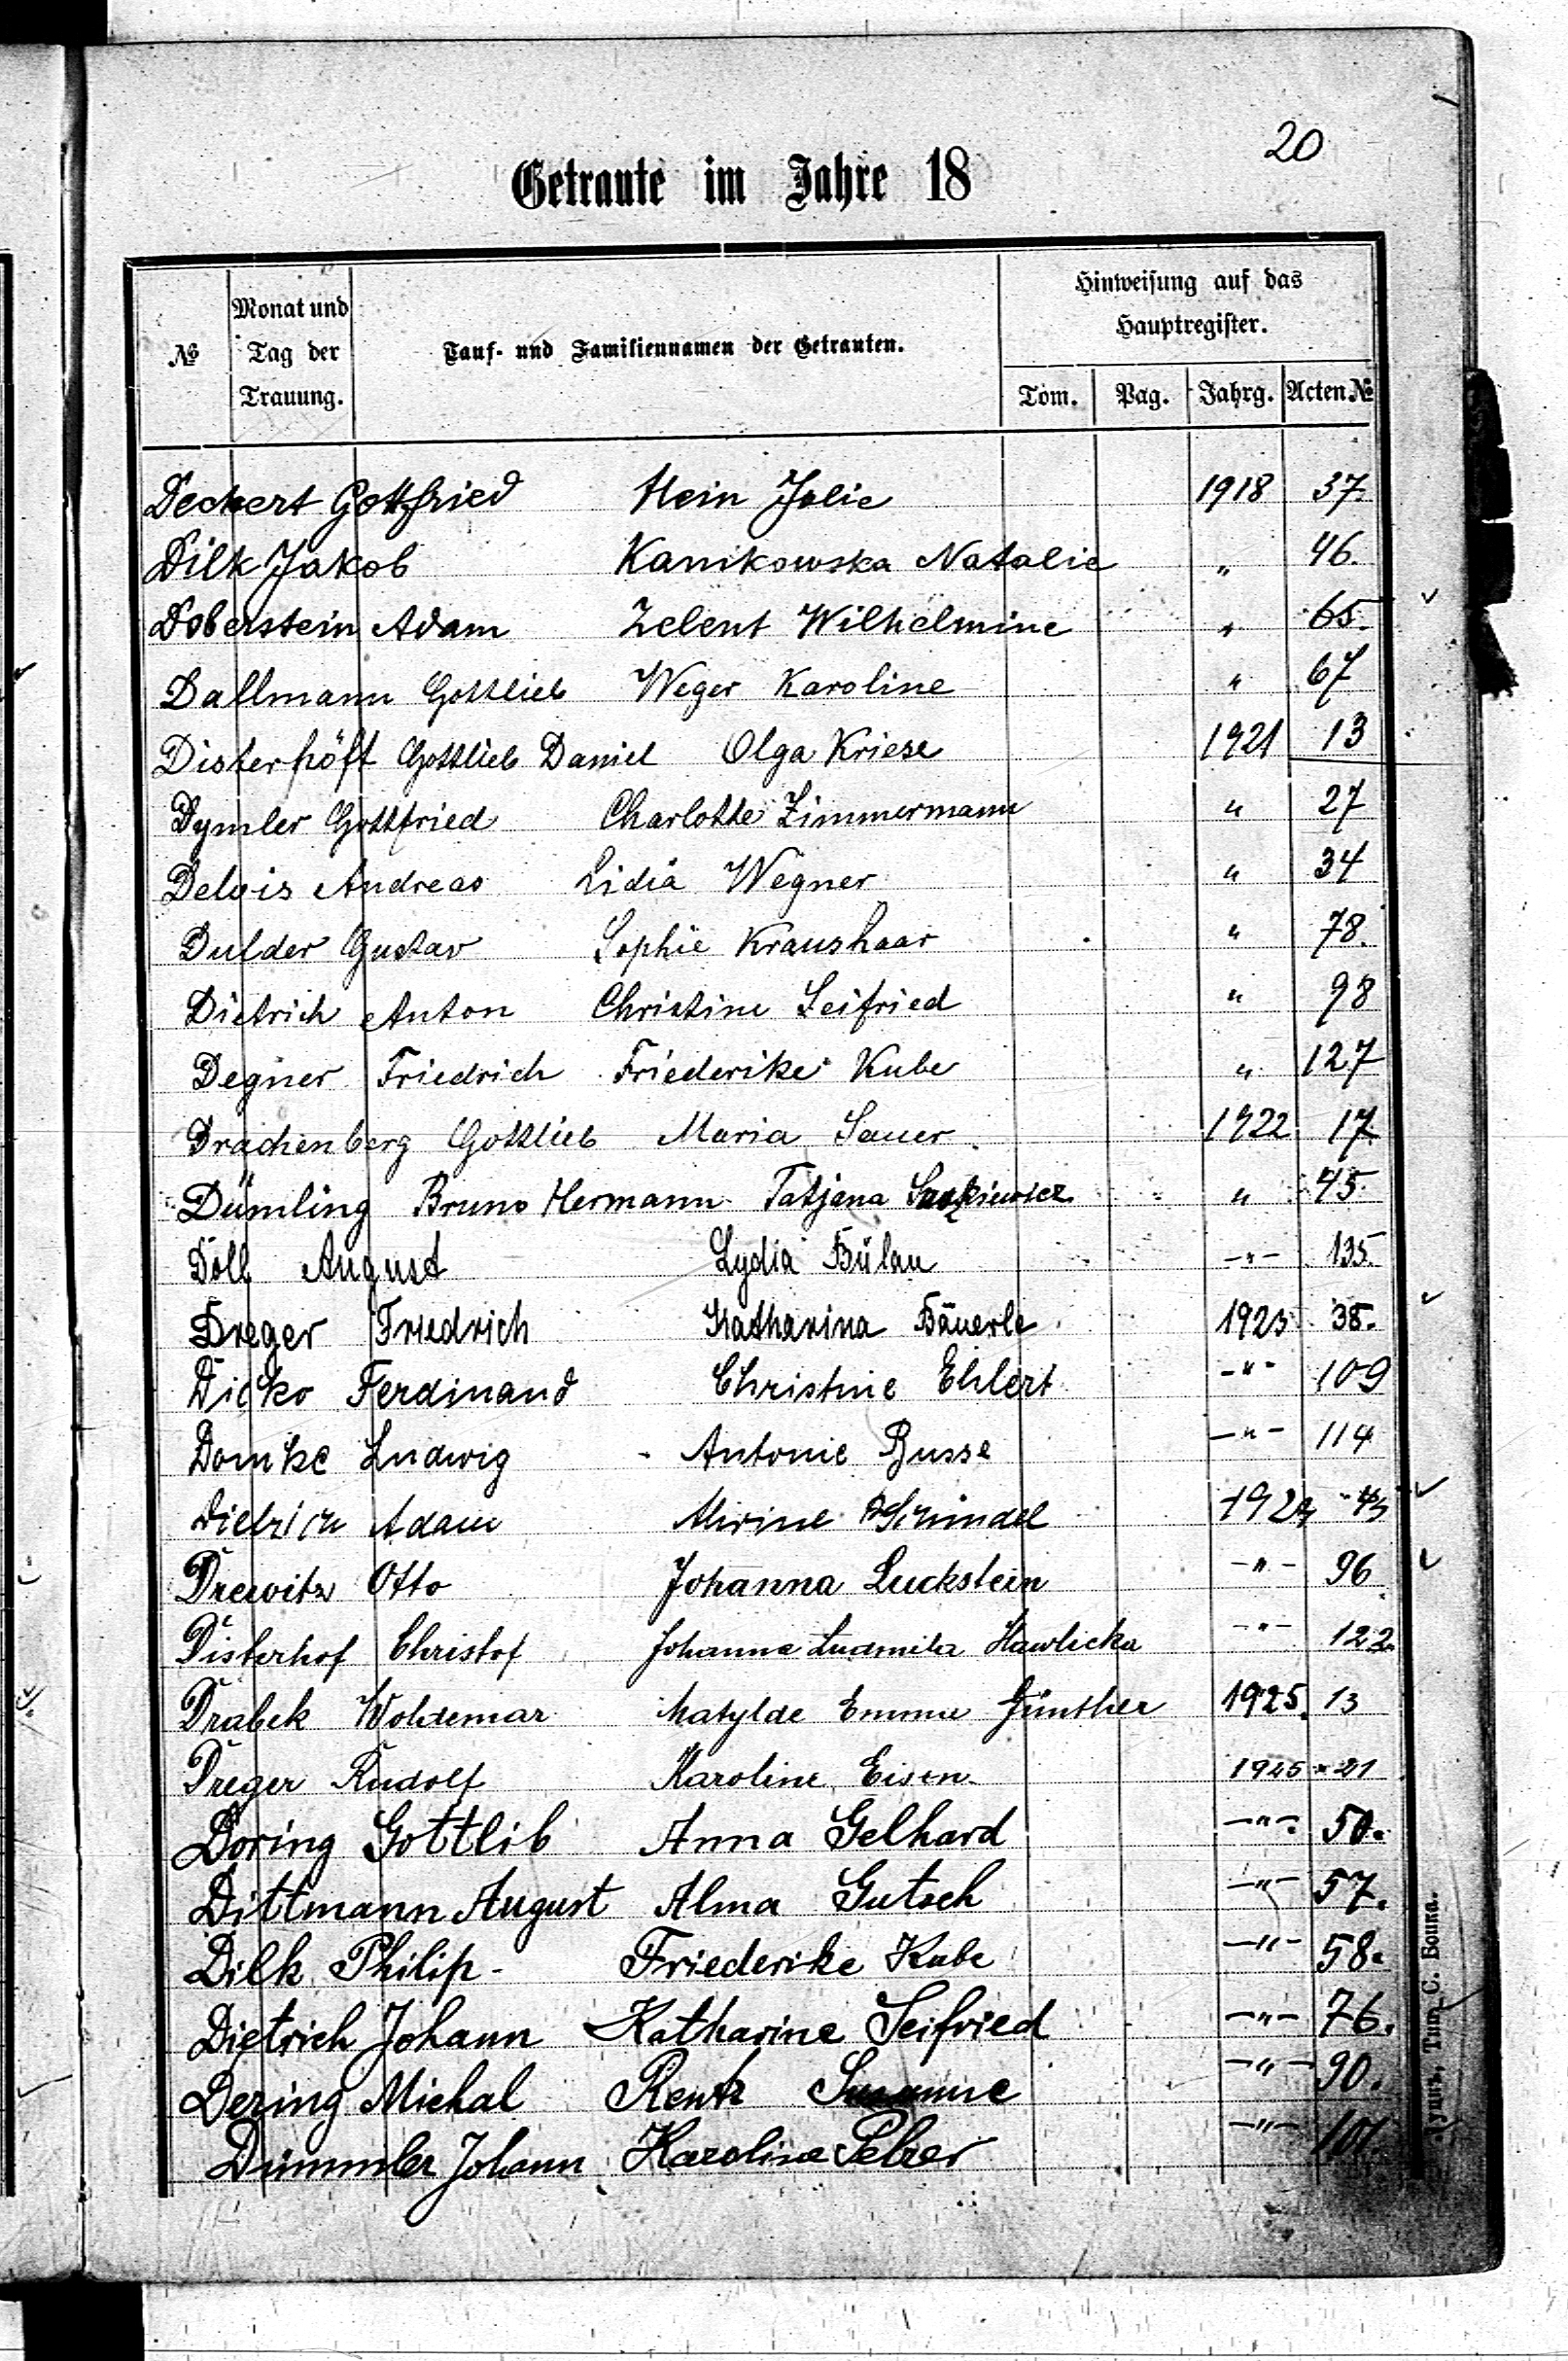 20
Getraute im Jahre 18
№ Monat und Tag der Trauung. Tauf- und Familiennamen der Getrauten. Hinweisung auf das Hauptregister.
Tom. Pag. Jahrg. Acten №
Deckert Gottfried Hein Julie 1918 37.
Dilk Jakob Kanikowska Natalie " 46.
Doberstein Adam Zelent Wilhelmine " 65.
Dallmann Gottlieb Weger Karoline " 67
Disterhöft Gottlieb Daniel Olga Kriese 1921 13
Dymler Gottfried Charlotte Zimmermann " 27
Delvis Andreas Lidia Wegner " 34
Dulder Gustav Sophie Kraushaar " 78.
Dietrich Anton Christine Seifried " 98
Degner Friedrich Friederike Kube " 127
Drachenberg Gottlieb Maria Sauer 1922 17.
Dümling Bruno Hermann Tatjana " 45.
Döll August Lydia Bülau -"- 135.
Dreger Friedrich Katharina Bäuerle 1923 38.
Dicko Ferdinand Christine Ehlert -"- 109
Domke Ludwig Antonie Busse -"- 114
Dietrich Adam 1924
Drewitz Otto Johanna Luckstein -"- 96
Disterhof Christof Johanna Ludmila Hawlicka -"- 122.
Drabek Woldemar Matylde Emma Günther 1925. 13
Dreger Rudolf Karoline Eisen 1925 21
Doring Gottlib Anna Gelhard -"- 50.
Dittmann August Alma Gutsch -"- 57.
Dilk Philip Friederike Kube -"- 58.
Dietrich Johann Katharine Seifried -"- 76.
Dering Michal Rentz Susanne -"- 90.
Dümmler Johann Karolina Pelzer -"- 101.
Тип. С. Боика.